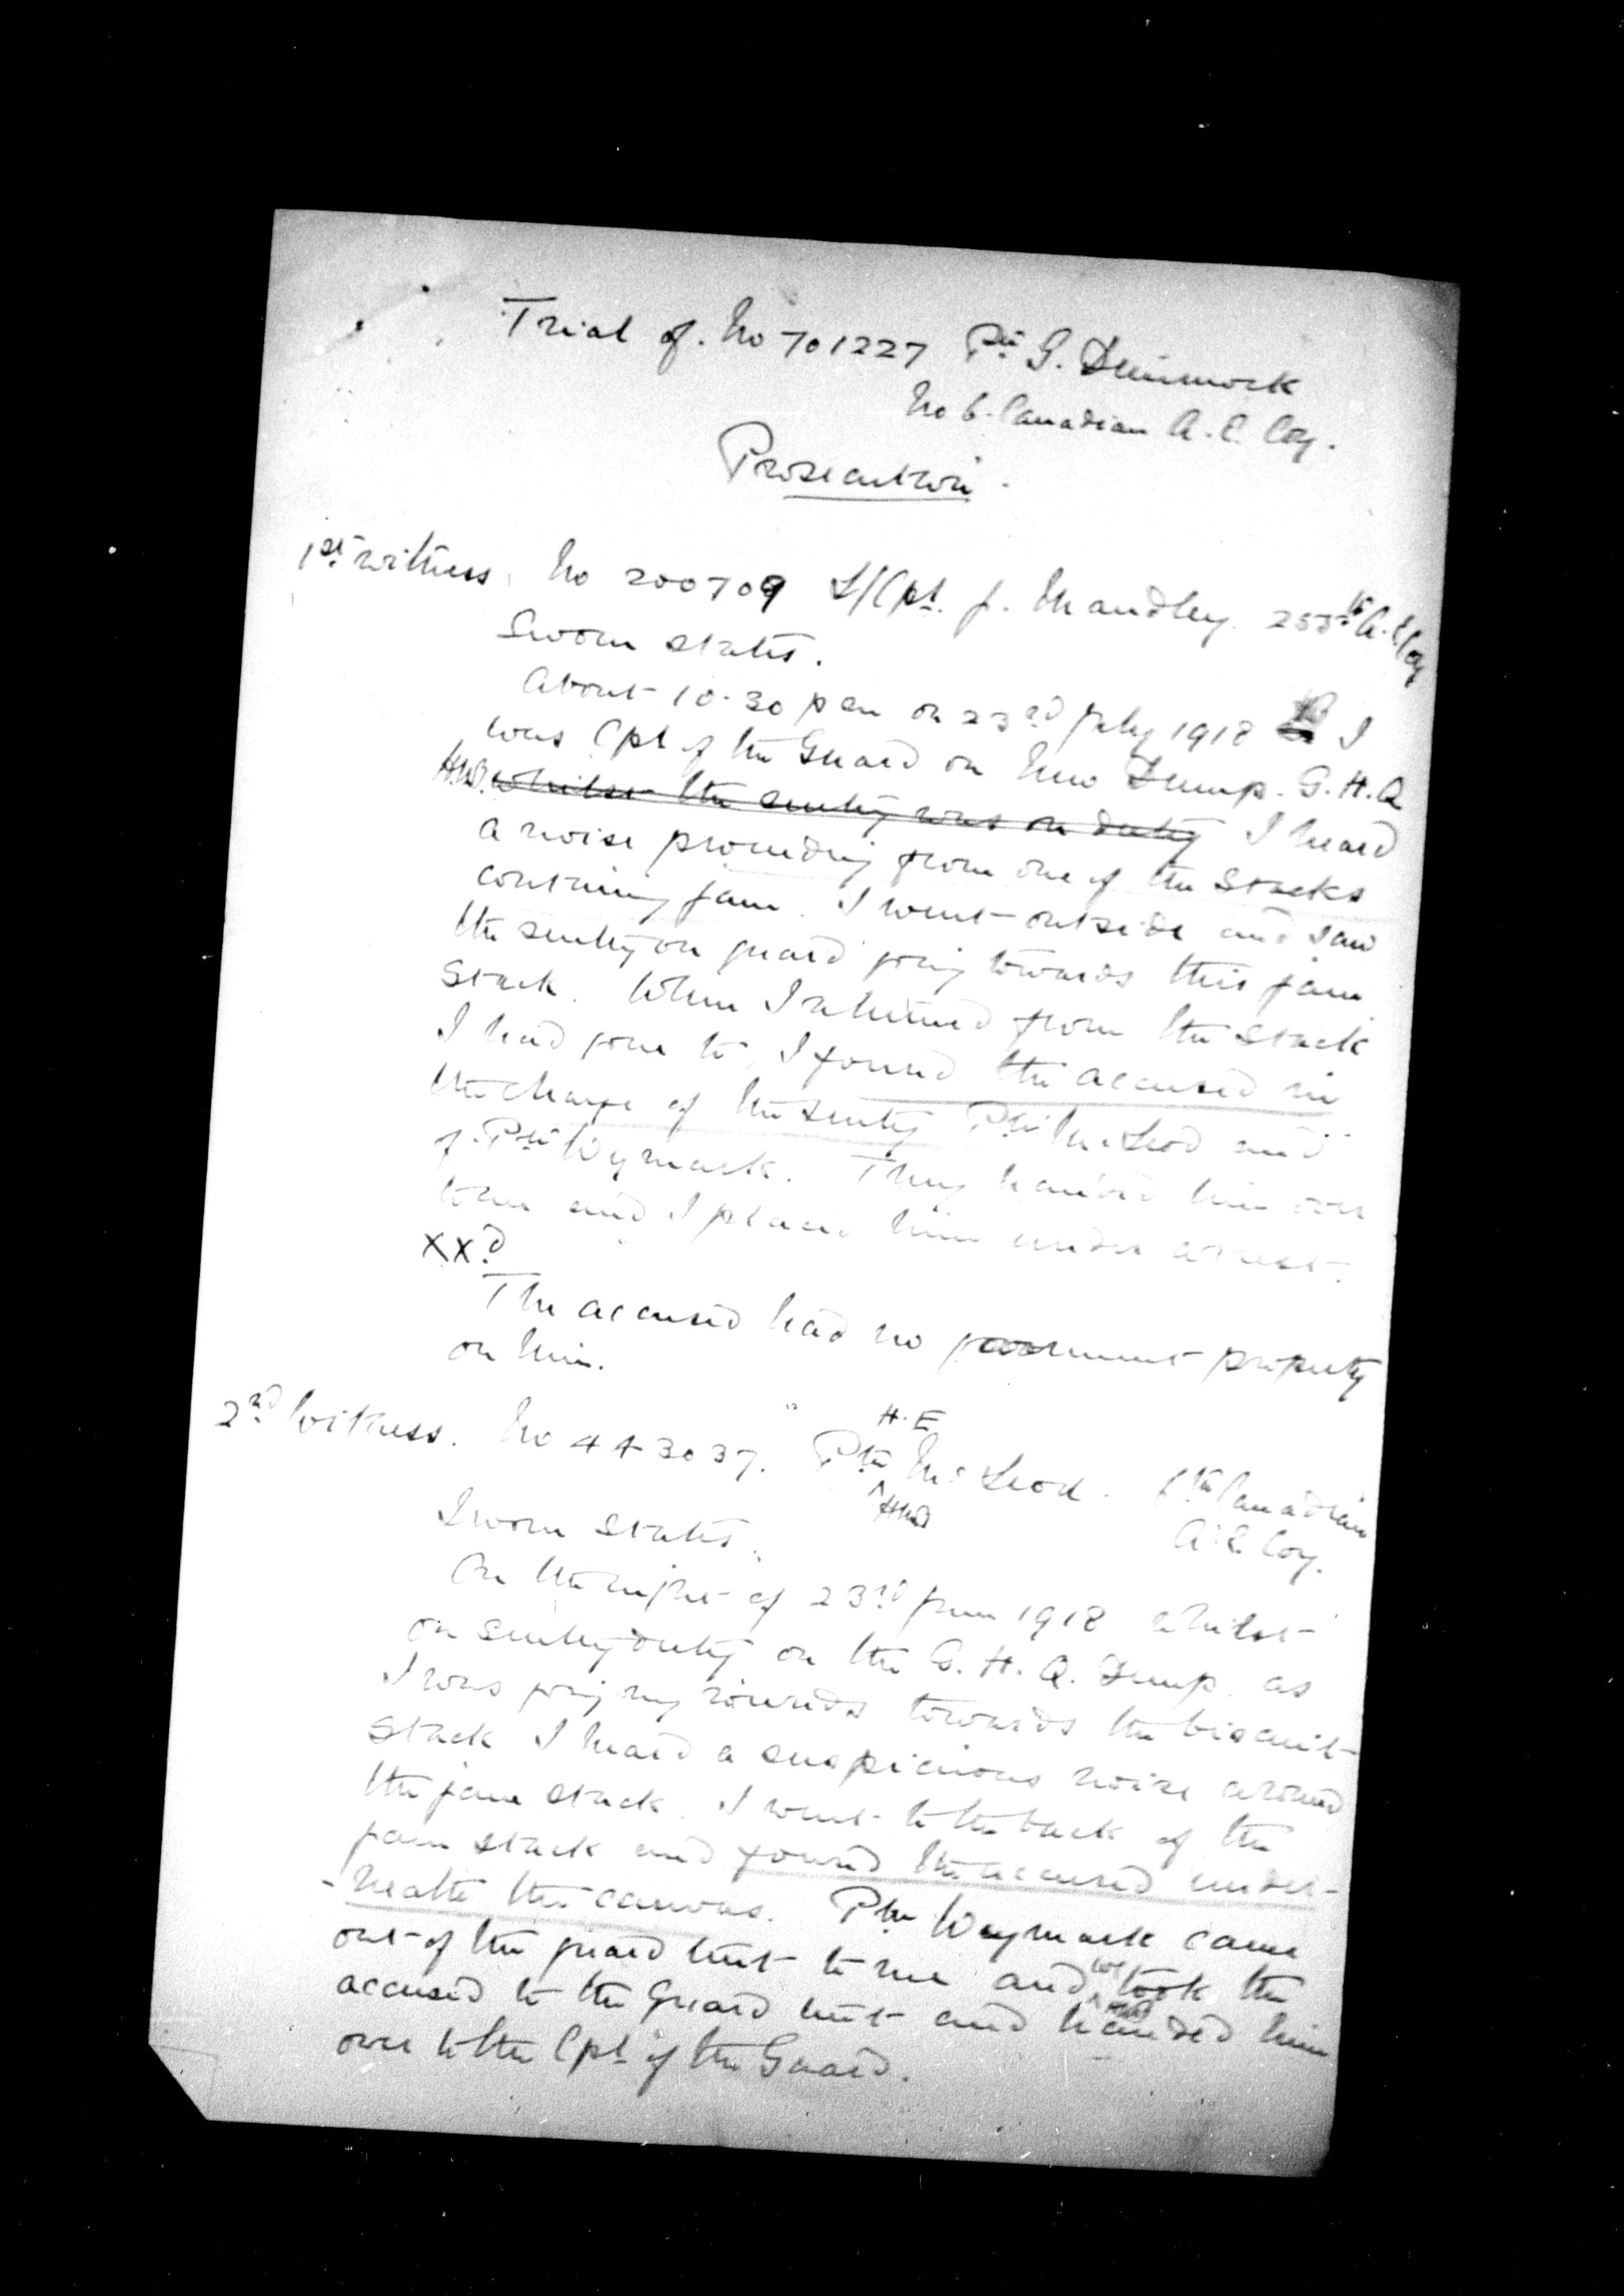 Trial of. No 701227 Pte G. Dimmock
No 6. Canadian A. E. Coy.
Prosecution.
1st witness. No 200709 L/Cpl. J. Mandley. A.E. Coy
Sworn states.
About 10.30 pm on 23rd July 1918 I
was Cpl of the Guard on New Dump. G.H.Q
HWB. whilst the sentry was on duty I heard
a noise proceeding from one of the stacks
containing jam. I went outside and saw
the sentry on guard going towards this jam
stack. When I returned from the stack
I had gone to, I found the accused in
the charge of the sentry Pte McLeod and
of Pte Wymark. They handed him over
to me and I placed him under arrest.
XXd
The accused had no government property
on him.
H.E
2nd Witness. No 443037. Pte McLeod. 6th Canadian
HWB
A.E. Coy.
Sworn states.
On the night of 23rd June 1918 whilst
on sentry duty on the G.H.Q. Dump as
I was going my rounds towards the biscuit
stack I heard a suspicious noise around
the jam stack. I went to the back of the
jam stack and found the accused under-
-neath the canvas. Pte Waymark came
out of the guard hut to me and we took the
accused to the Guard hut and handed him
over to the Cpl of the Guard.